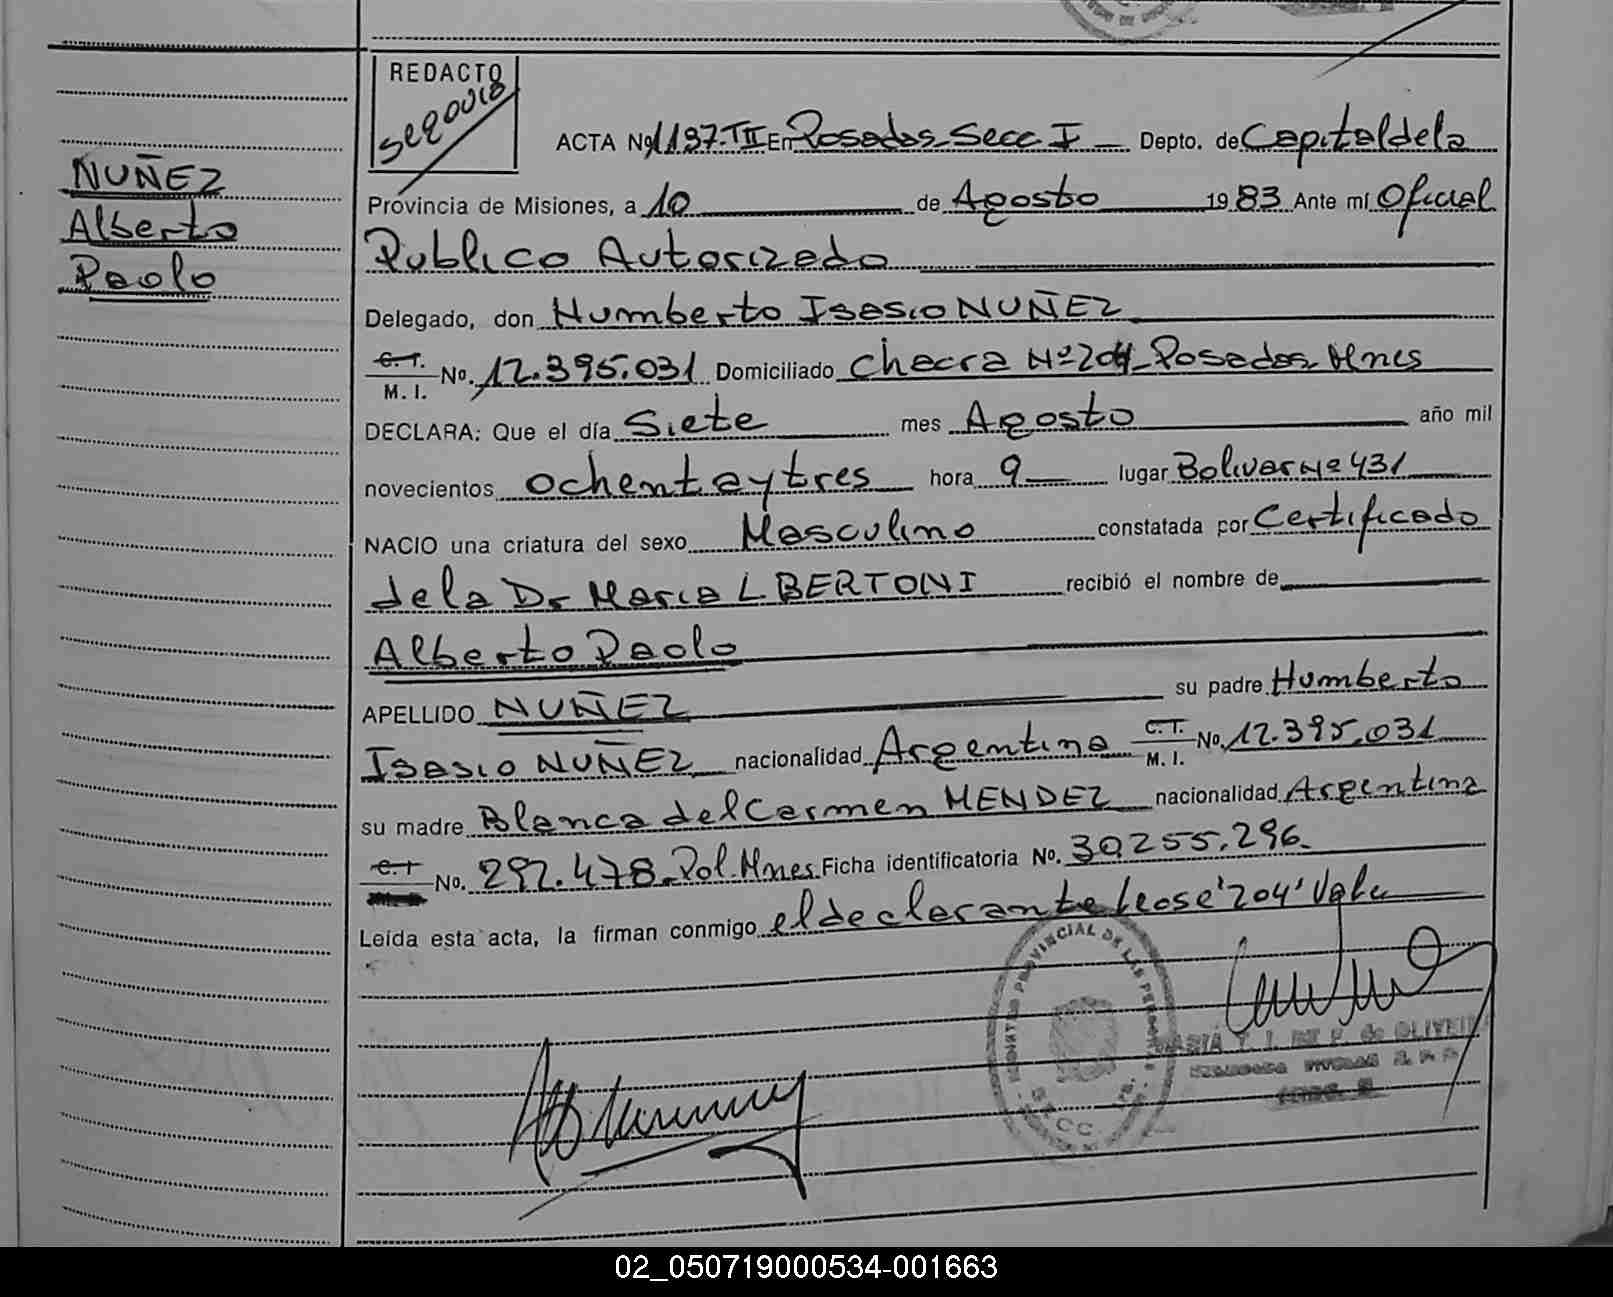 REDACTO
Segovia
NUÑEZ
Alberto
Paolo
ACTA No. 1197-TII En Posadas Secc I Depto. de Capital de la
Provincia de Misiones, a 10 de Agosto 1983 Ante mí Oficial
Publico Autorizado
Delegado, don Humberto Isasio NUÑEZ
C. T.
M. I. No. 12.395.031 Domiciliado Chacra Nº 204 Posadas Mnes
DECLARA: Que el día Siete mes Agosto año mil
novecientos ochenta y tres hora 9 lugar Bolivar Nº 431
NACIO una criatura del sexo Masculino constatada por Certificado
de la Dr Maria L BERTONI recibió el nombre de
Alberto Paolo
APELLIDO NUÑEZ su padre Humberto
Isasio NUÑEZ nacionalidad Argentina C.T. M. I. No. 12.395.031
su madre Blanca del Carmen MENDEZ nacionalidad Argentina
C.T No. 292.478 Pol. Mnes Ficha identificatoria No. 30.255.296.
Leída esta acta, la firman conmigo el declarante lease '204' Vale
REGISTRO PROVINCIAL DE LAS PERSONAS
SECC
MARIA de OLIVEIRA
02_050719000534-001663